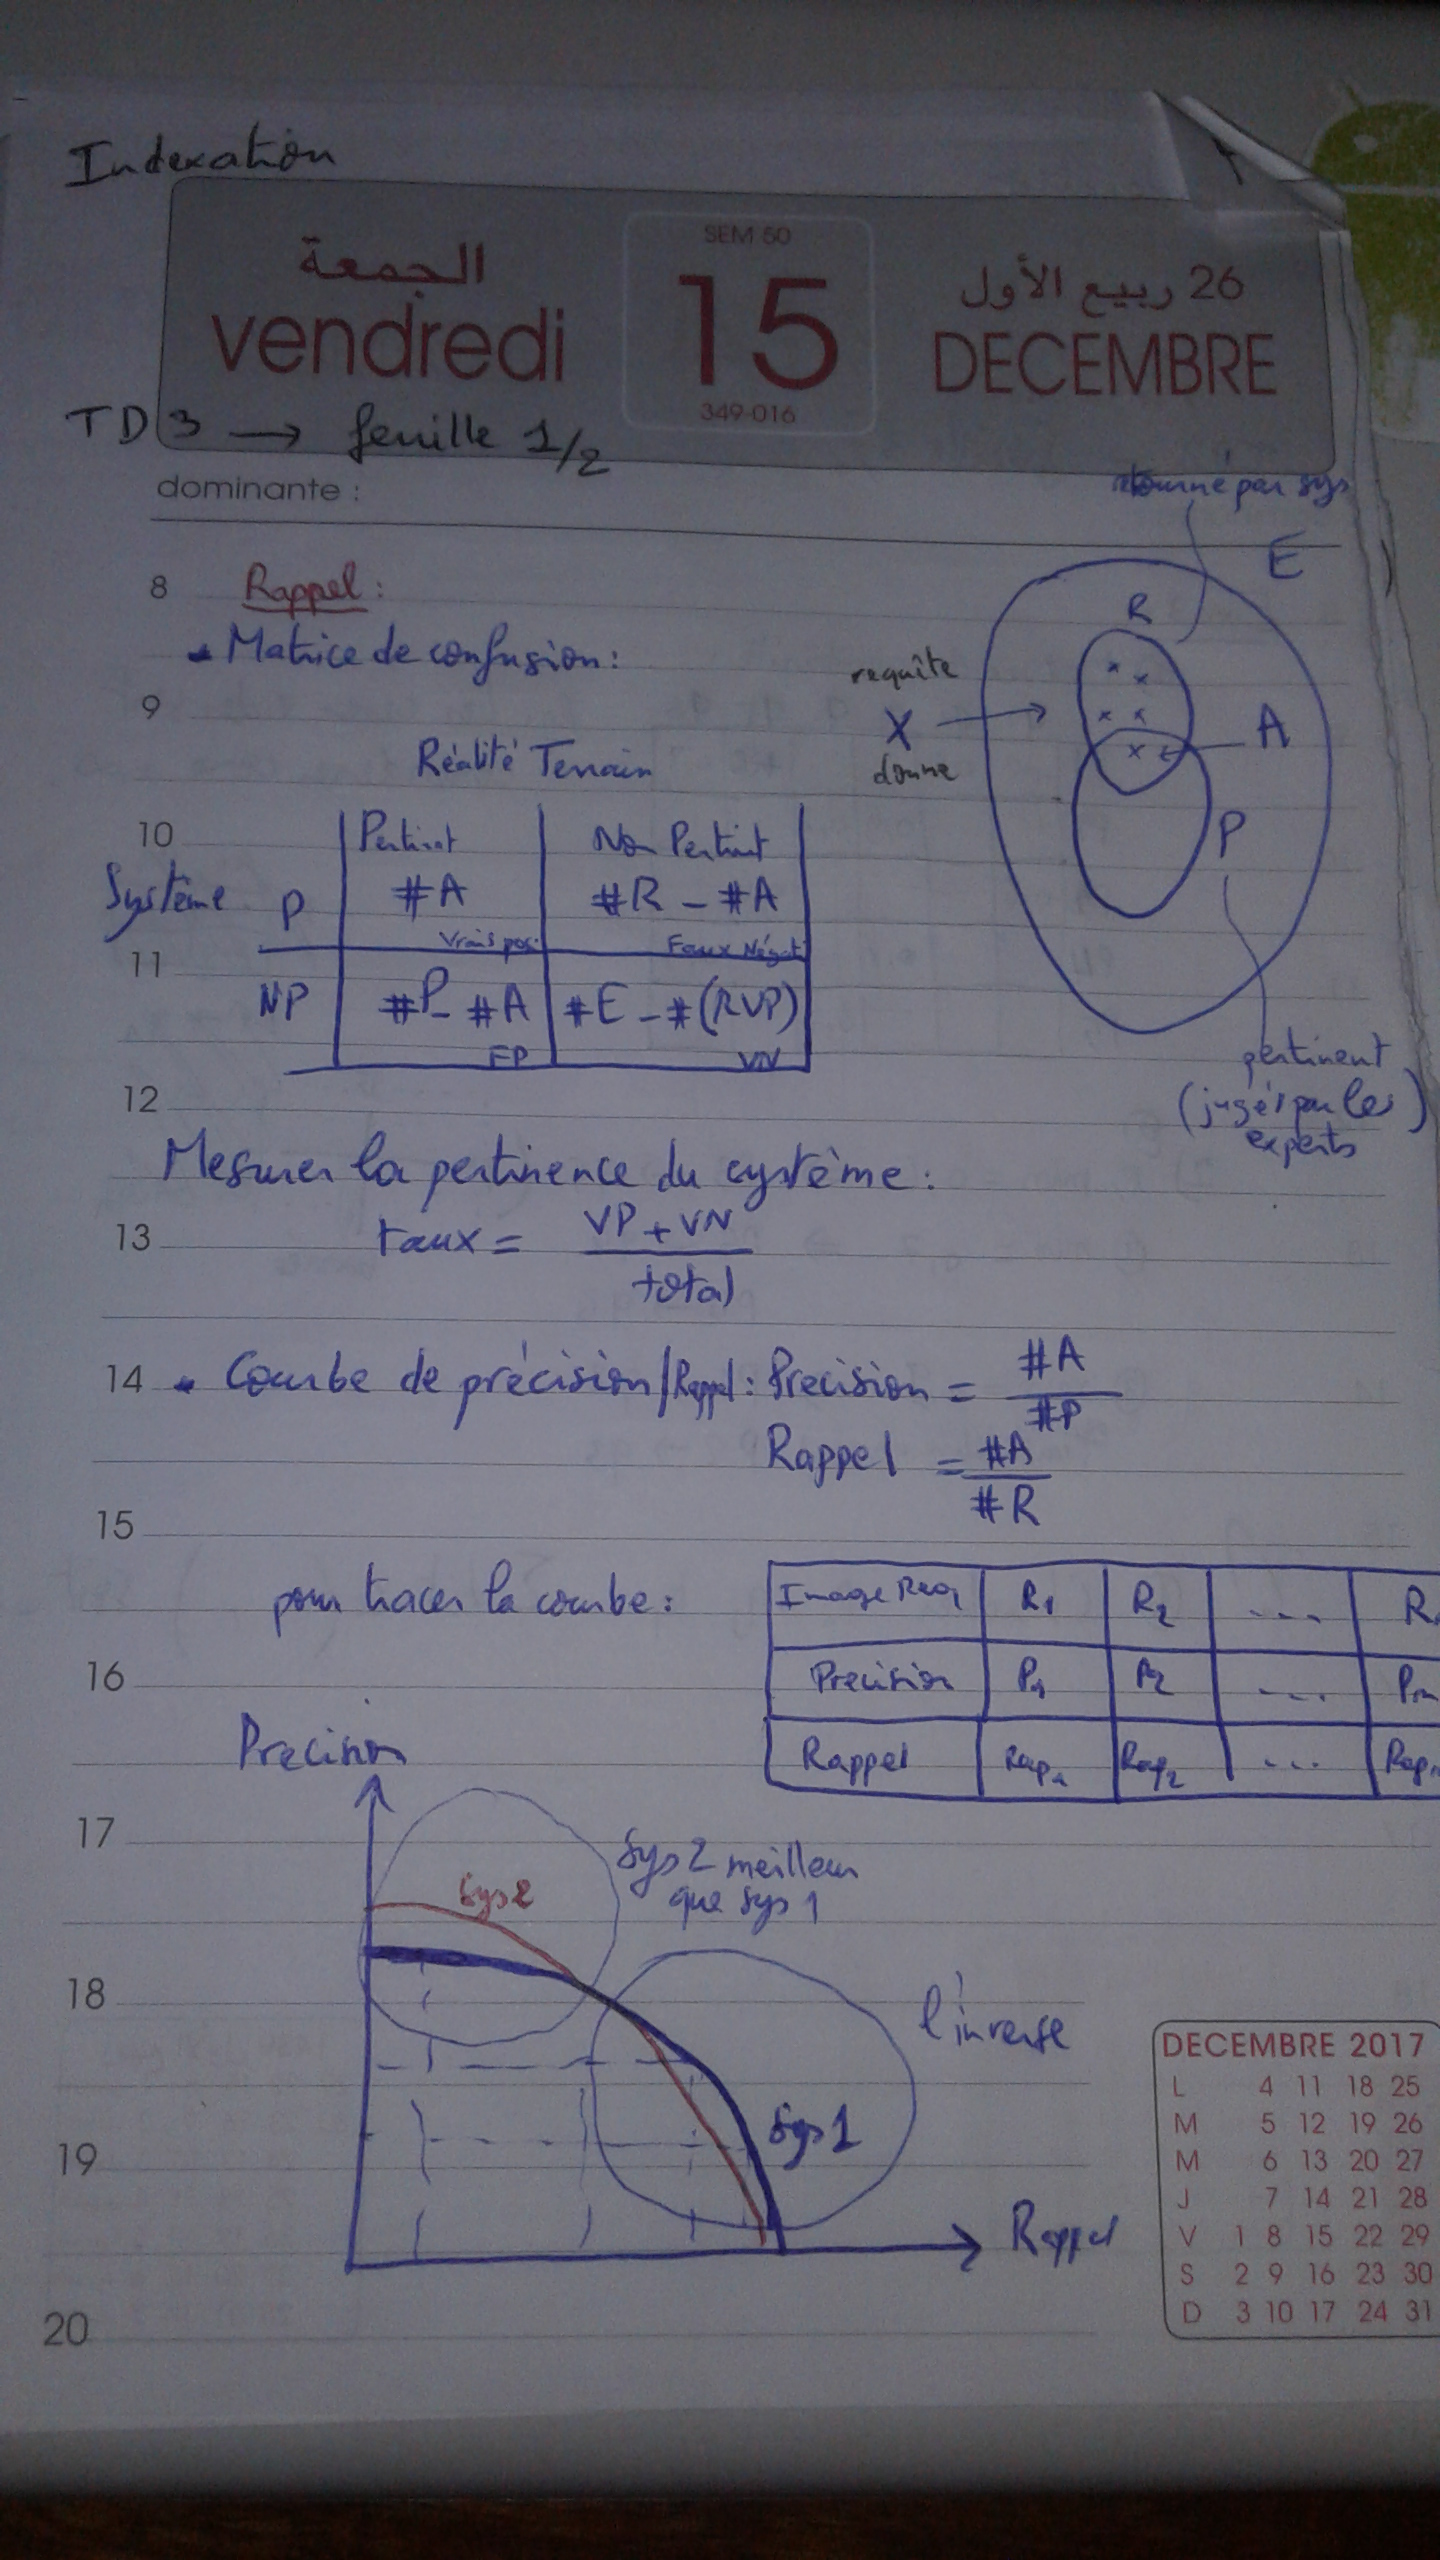 Indexation
الجمعة
vendredi
SEM 50
15
349-016
26 ربيع الأول
DECEMBRE
TD 3 → feuille 1/2
dominante :
retourné par sys
E
8 Rappel :
R
• Matrice de confusion :
requête
9
X
A
donne
Réalité Terrain
10
Pertinent Non Pertinent
P
Système P #A #R - #A
Vrais pos. Faux Négat
11
NP #P - #A #E - #(RUP)
FP VN
pertinent
(jugés par les)
experts
12
Mesurer la pertinence du système :
13 taux = VP + VN
total
14 • Courbe de précision/Rappel : Precision = #A
#P
Rappel = #A
#R
15
pour tracer la courbe :
Image Req R1 R2 ....
16
Precision P1 P2 .... Pm
Rappel Rap1 Rap2 ...
Precision
17
Sys 2 meilleur
que sys 1
Sys2
18
l'inverse
Sys1
19
Rappel
20
DECEMBRE 2017
L 4 11 18 25
M 5 12 19 26
M 6 13 20 27
J 7 14 21 28
V 1 8 15 22 29
S 2 9 16 23 30
D 3 10 17 24 31